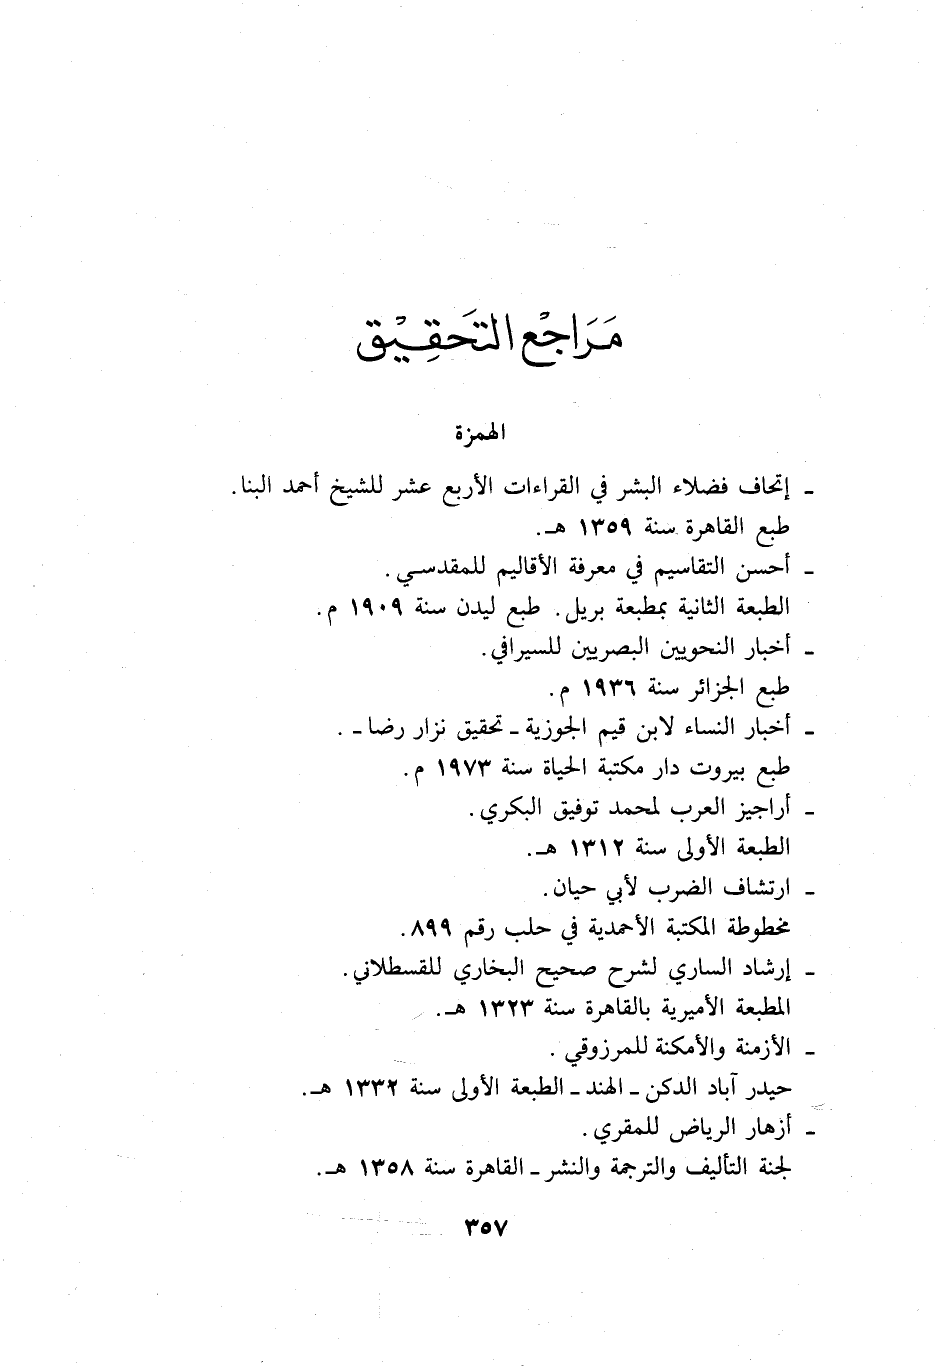 مَرَاجْع التَحَقِيْق
الهمزة
ـ إتحاف فضلاء البشر في القراءات الأربع عشر للشيخ أحمد البنا.
طبع القاهرة سنة ١٣٥٩ هـ.
ـ أحسن التقاسيم في معرفة الأقاليم للمقدسي.
الطبعة الثانية بمطبعة بريل. طبع ليدن سنة ١٩٠٩ م.
ـ أخبار النحويين البصريين للسيرافي.
طبع الجزائر سنة ١٩٣٦ م.
ـ أخبار النساء لابن قيم الجوزية ـ تحقيق نزار رضا ـ .
طبع بيروت دار مكتبة الحياة سنة ١٩٧٣ م.
ـ أراجيز العرب لمحمد توفيق البكري.
الطبعة الأولى سنة ١٣١٢ هـ.
ـ ارتشاف الضرب لأبي حيان.
مخطوطة المكتبة الأحمدية في حلب رقم ٨٩٩.
ـ إرشاد الساري لشرح صحيح البخاري للقسطلاني.
المطبعة الأميرية بالقاهرة سنة ١٣٢٣ هـ.
ـ الأزمنة والأمكنة للمرزوقي .
حيدر آباد الدكن ـ الهند ـ الطبعة الأولى سنة ١٣٣٢ هـ.
ـ أزهار الرياض للمقري.
لجنة التأليف والترجمة والنشر ـ القاهرة سنة ١٣٥٨ هـ.
٣٥٧